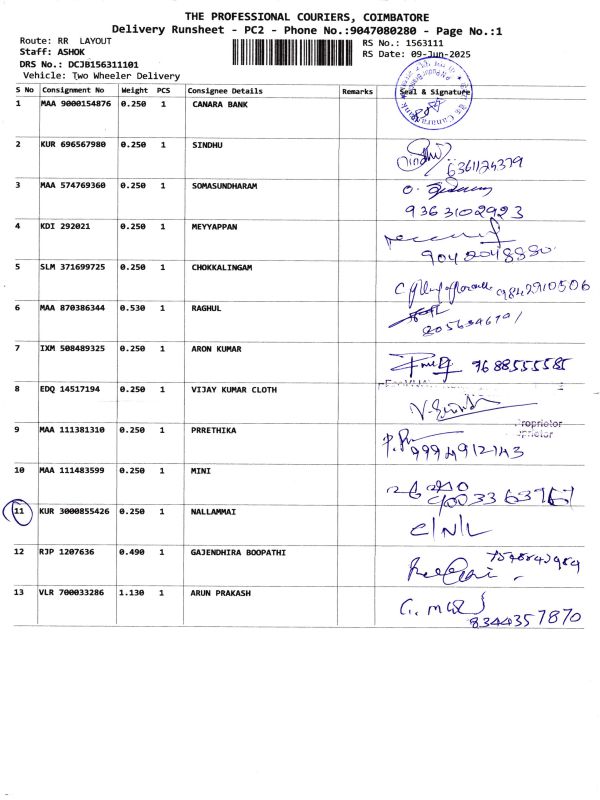 THE PROFESSIONAL COURIERS, COIMBATORE
Delivery Runsheet - PC2 - Phone No.:9047080280 - Page No.:1
Route: RR LAYOUT
RS No.: 1563111
Staff: ASHOK
RS Date: 09-Jun-2025
DRS No.: DCJB156311101
Vehicle: Two Wheeler Delivery
S No Consignment No Weight PCS Consignee Details Remarks Seal & Signature
1 MAA 9000154876 0.250 1 CANARA BANK
2 KUR 696567980 0.250 1 SINDHU Sindhu 6361124379
3 MAA 574769360 0.250 1 SOMASUNDHARAM
9363102923
4 KDI 292021 0.250 1 MEYYAPPAN
9042048880
5 SLM 371699725 0.250 1 CHOKKALINGAM 9842910506
6 MAA 870386344 0.530 1 RAGHUL
7 IXM 508489325 0.250 1 ARON KUMAR 9688555585
8 EDQ 14517194 0.250 1 VIJAY KUMAR CLOTH
Proprietor
9 MAA 111381310 0.250 1 PRRETHIKA
9994912143
10 MAA 111483599 0.250 1 MINI
11 KUR 3000855426 0.250 1 NALLAMMAI C/N/L
12 RJP 1207636 0.490 1 GAJENDHIRA BOOPATHI
13 VLR 700033286 1.130 1 ARUN PRAKASH
8344357870